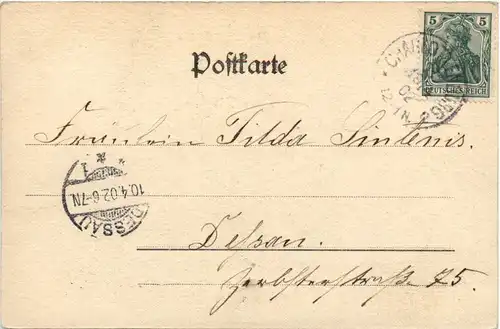 5 5
DEUTSCHES REICH
Postkarte
Fräulein Tilda Sintenis.
* * 1
10.4.02.6-7N.
DESSAU
Dessau.
Zerbsterstraße 75.